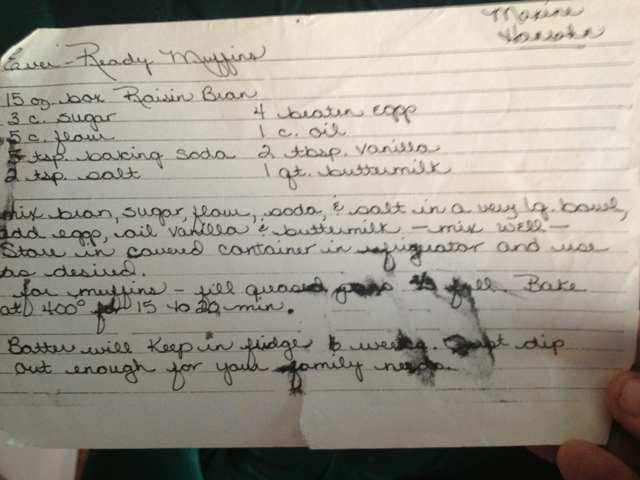 Maxine
Ever-Ready Muffins
15 oz box Raisin Bran
3 c. sugar
4 beaten eggs
5 c. flour
1 c. oil
5 tsp. baking soda
2 tbsp. vanilla
2 tsp. salt
1 qt. buttermilk
mix bran, sugar, flour, soda, & salt in a very lg. bowl,
add eggs, oil vanilla & buttermilk - mix well -
Store in covered container in refrigerator and use
as desired.
for muffins - fill greased full. Bake
at 400° for 15 to 20 min.
Batter will keep in fridge 6 weeks. Just dip
out enough for your family needs.